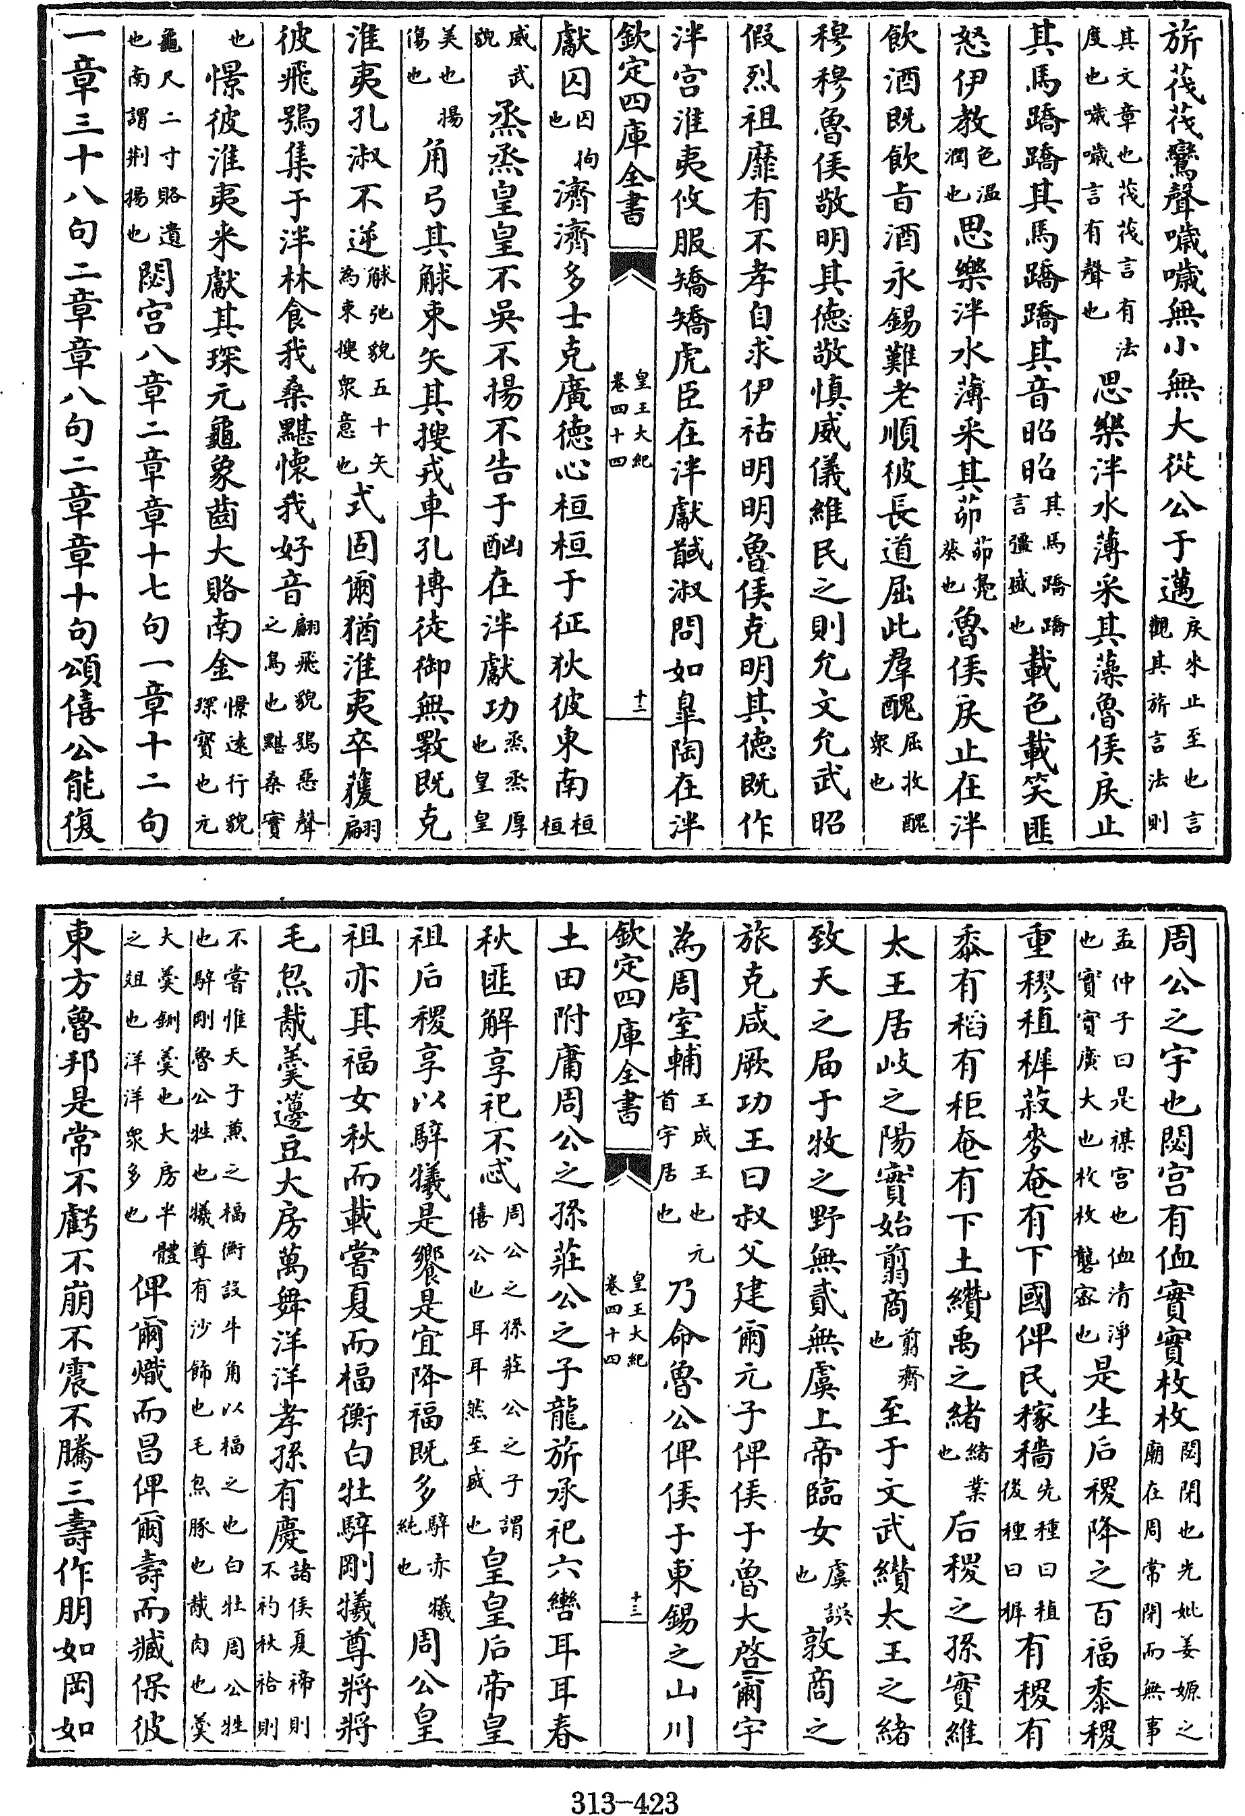 旂茷茷鸞聲噦噦無小無大從公于邁戾來止至也言觀其旂言法則
其文章也茷茷言有法度也噦噦言有聲也思樂泮水薄采其藻魯侯戾止
其馬蹻蹻其馬蹻蹻其音昭昭其馬蹻蹻言彊盛也載色載笑匪
怒伊教色温潤也思樂泮水薄采其茆茆鳧葵也魯侯戾止在泮
飲酒既飲旨酒永錫難老順彼長道屈此羣醜屈收醜衆也
穆穆魯侯敬明其德敬慎威儀維民之則允文允武昭
假烈祖靡有不孝自求伊祜明明魯侯克明其德既作
泮宫淮夷攸服矯矯虎臣在泮獻馘淑問如臯陶在泮
欽定四庫全書 皇王大紀 卷四十四 十二
獻囚囚拘也濟濟多士克廣德心桓桓于征狄彼東南桓桓
威武貌烝烝皇皇不吳不揚不告于訩在泮獻功烝烝厚也皇皇
美也揚傷也角弓其觩束矢其搜戎車孔博徒御無斁既克
淮夷孔淑不逆觩弛貌五十矢為束搜衆意也式固爾猶淮夷卒獲翩
彼飛鴞集于泮林食我桑黮懷我好音翩飛貌鴞惡聲之鳥也黮桑實
也憬彼淮夷來獻其琛元龜象齒大賂南金憬遠行貌琛寶也元
龜尺二寸賂遺也南謂荆揚也閟宫八章二章章十七句一章十二句
一章三十八句二章章八句二章章十句頌僖公能復
周公之宇也閟宫有侐實實枚枚閟閉也先妣姜嫄之廟在周常閉而無事
孟仲子曰是禖宫也侐清淨也實實廣大也枚枚礱密也是生后稷降之百福黍稷
重穋稙稺菽麥奄有下國俾民稼穡先種曰稙後種曰稺有稷有
黍有稻有秬奄有下土纘禹之緒緒業也后稷之孫實維
太王居岐之陽實始翦商翦齊也至于文武纘太王之緒
致天之届于牧之野無貳無虞上帝臨女虞誤也敦商之
旅克咸厥功王曰叔父建爾元子俾侯于魯大啓爾宇
為周室輔王成王也元首宇居也乃命魯公俾侯于東錫之山川
欽定四庫全書 皇王大紀 卷四十四 十三
土田附庸周公之孫莊公之子龍旂承祀六轡耳耳春
秋匪解享祀不忒周公之孫莊公之子謂僖公也耳耳然至盛也皇皇后帝皇
祖后稷享以騂犧是饗是宜降福既多騂赤犧純也周公皇
祖亦其福女秋而載嘗夏而楅衡白牡騂剛犧尊將將
毛炰胾羹籩豆大房萬舞洋洋孝孫有慶諸侯夏禘則不礿秋祫則
不嘗惟天子兼之楅衡設牛角以楅之也白牡周公牲也騂剛魯公牲也犧尊有沙飾也毛炰豚也胾肉也羹
大羹鉶羹也大房半體之俎也洋洋衆多也俾爾熾而昌俾爾壽而臧保彼
東方魯邦是常不虧不崩不震不騰三壽作朋如岡如
313-423